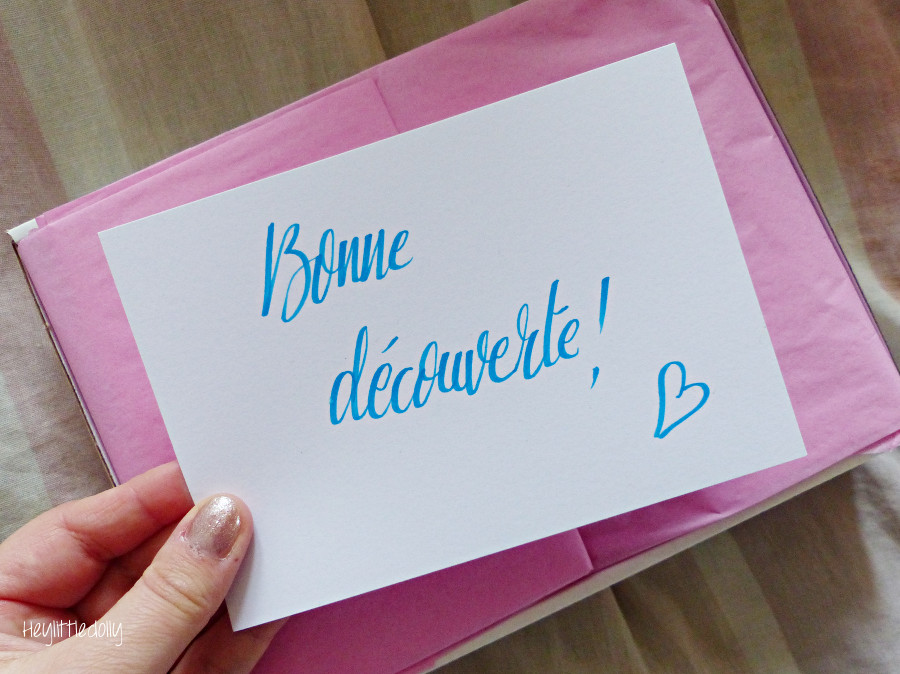 Bonne
découverte!
Heylittledolly